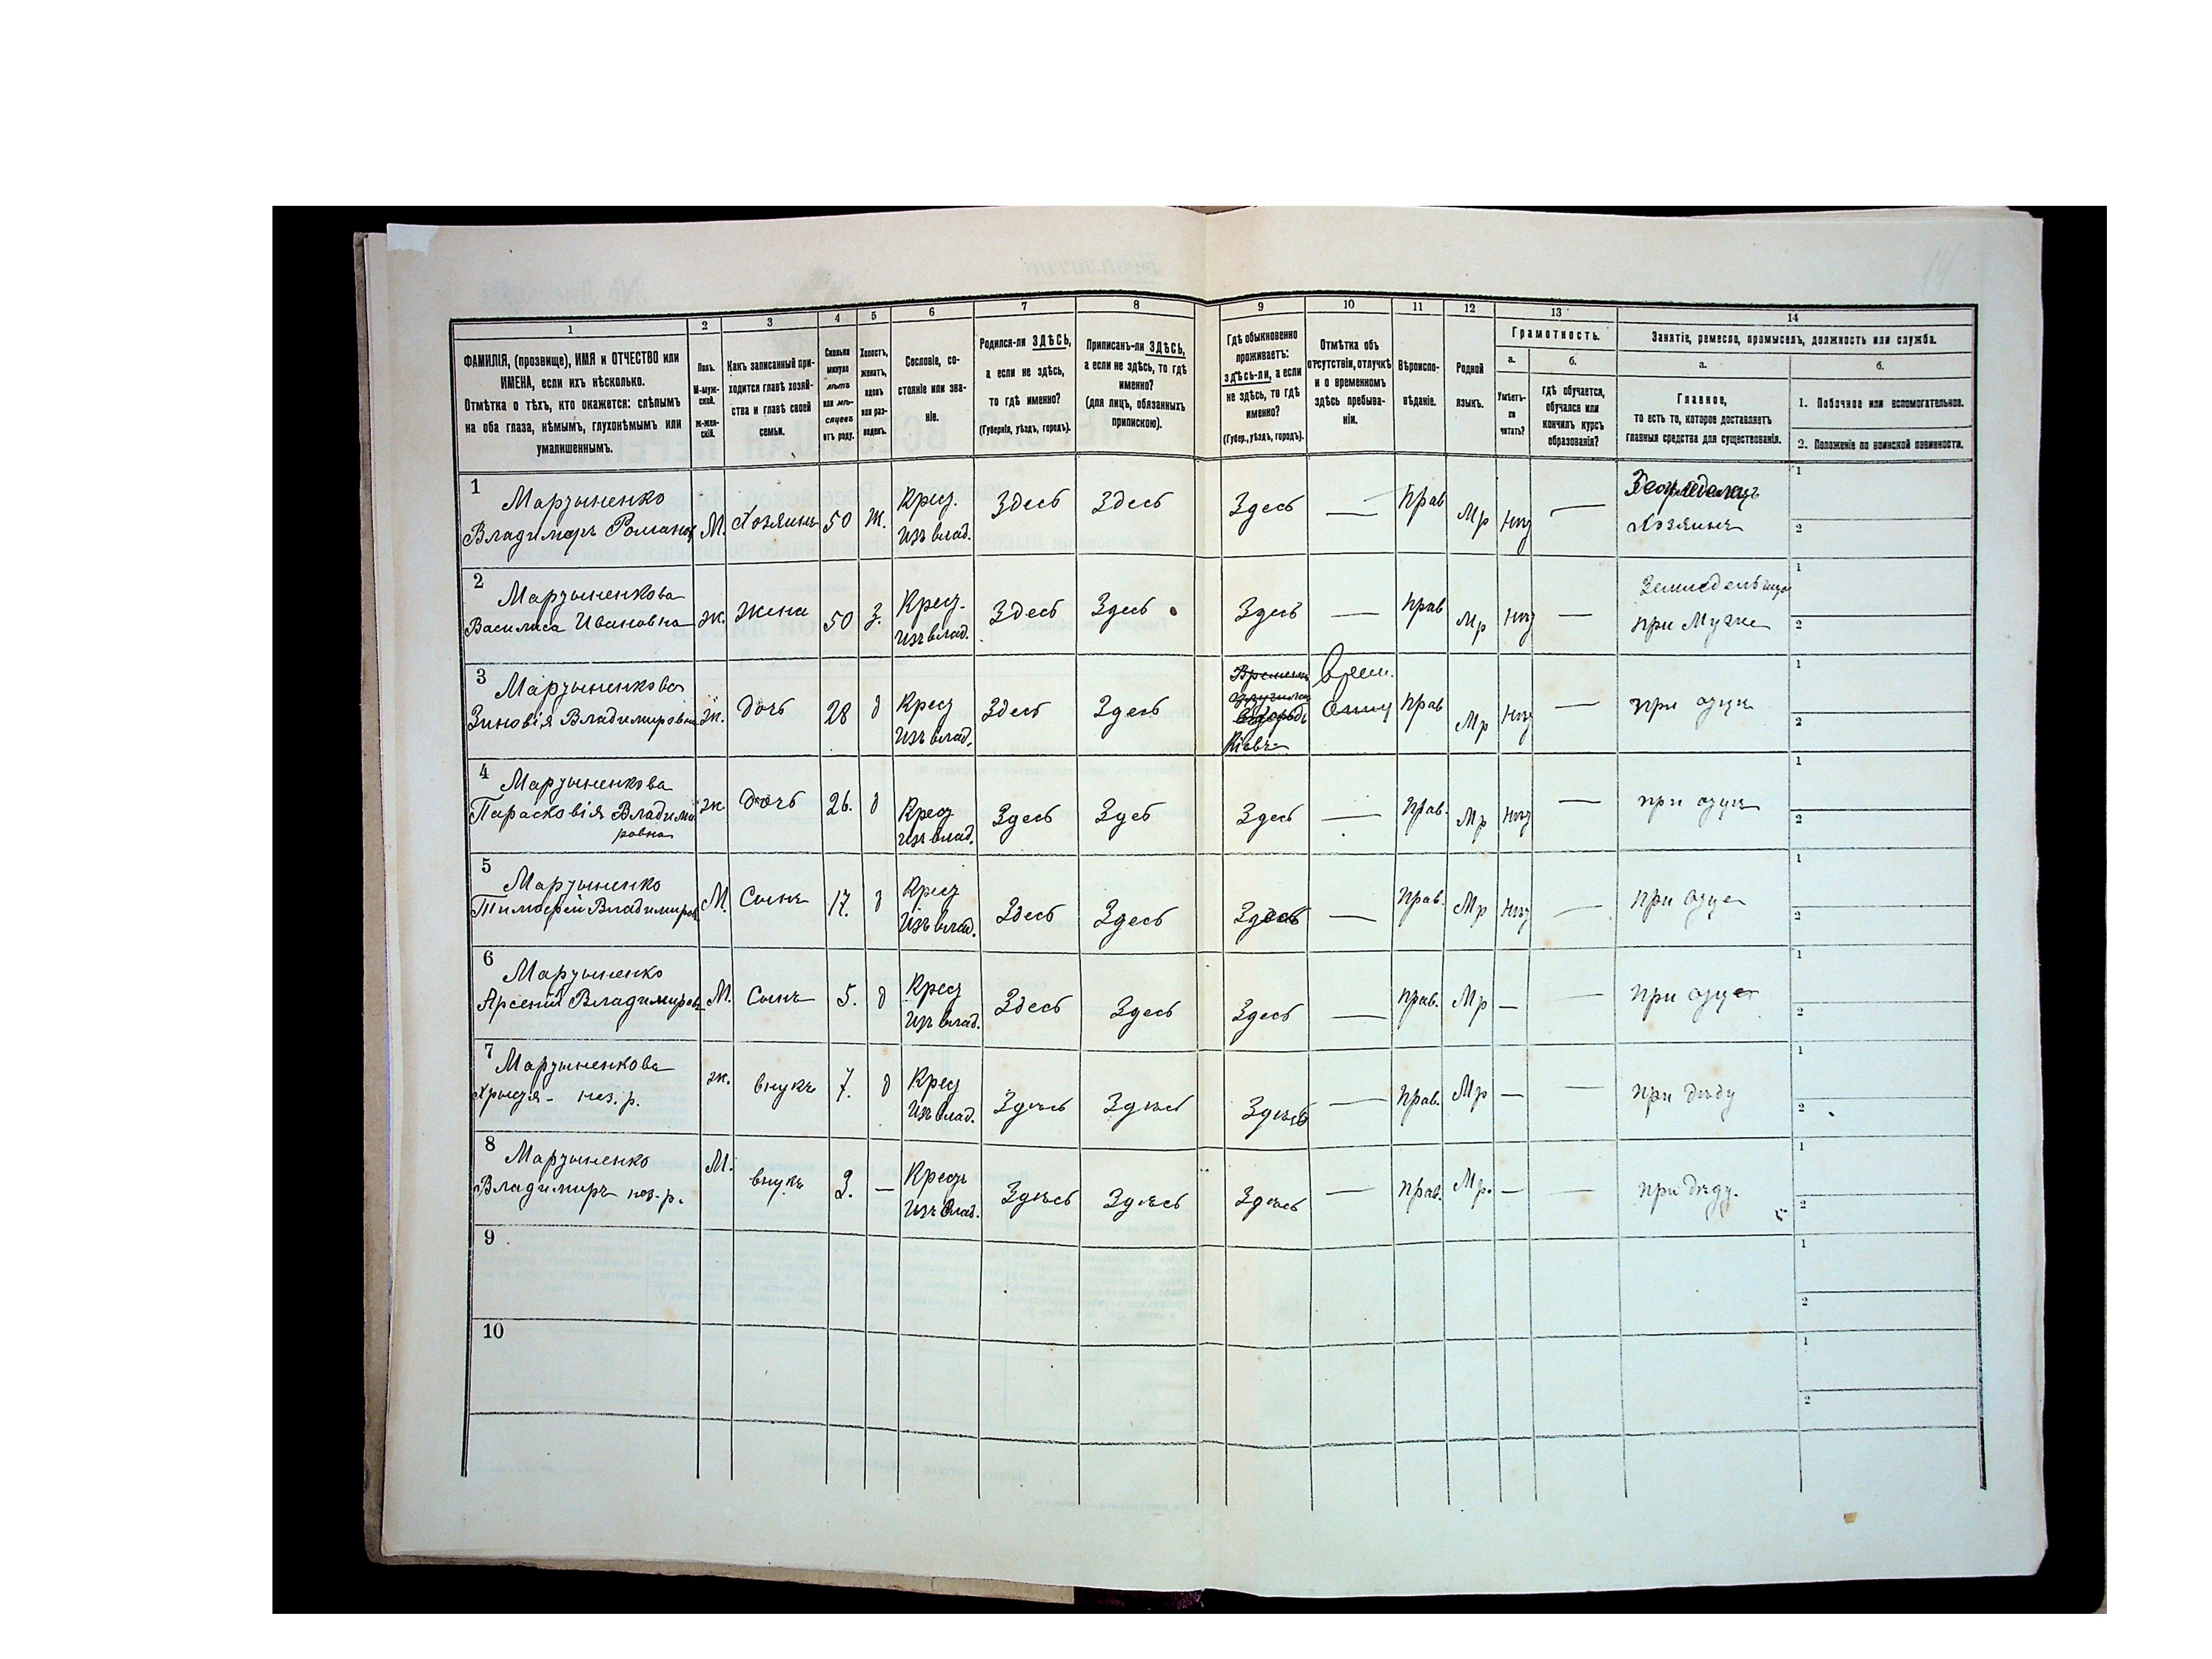 14
1 2 3 4 5 6 7 8 9 10 11 12 13 14
ФАМИЛІЯ, (прозвище), ИМЯ и ОТЧЕСТВО или
ИМЕНА, если ихъ нѣсколько.
Отмѣтка о тѣхъ, кто окажется: слѣпымъ
на оба глаза, нѣмымъ, глухонѣмымъ или
умалишеннымъ.
Полъ.
М-муж-
ской.
ж-жен-
скій.
Какъ записанный при-
ходится главѣ хозяй-
ства и главѣ своей
семьи.
Сколько
минуло
лѣтъ
или мѣ-
сяцевъ
отъ роду.
Холостъ,
женатъ,
вдовъ
или раз-
веденъ.
Сословіе, со-
стояніе или зва-
ніе.
Родился-ли ЗДѢСЬ,
а если не здѣсь,
то гдѣ именно?
(Губернія, уѣздъ, городъ).
Приписанъ-ли ЗДѢСЬ,
а если не здѣсь, то гдѣ
именно?
(для лицъ, обязанныхъ
припискою).
Гдѣ обыкновенно
проживаетъ:
здѣсь-ли, а если
не здѣсь, то гдѣ
именно?
(Губер., уѣздъ, городъ).
Отмѣтка объ
отсутствіи, отлучкѣ
и о временномъ
здѣсь пребыва-
ніи.
Вѣроиспо-
вѣданіе.
Родной
языкъ.
Грамотность.
а.
Умѣетъ-
ли
читать?
б.
гдѣ обучается,
обучался или
кончилъ курсъ
образованія?
Занятіе, ремесло, промыселъ, должность или служба.
а.
Главное,
то есть то, которое доставляетъ
главныя средства для существованія.
б.
1. Побочное или вспомогательное.
2. Положеніе по воинской повинности.
1 Мартыненко
Владимиръ Романов М. Хозяинъ 50 Ж. Крест. Изъ влад. Здесь Здесь Здесь — Прав Мр Нѣт — Земледелец Хозяинъ 1 2
2 Мартыненкова
Василиса Ивановна ж. жена 50 З. Крест. Изъ влад. Здесь Здесь Здесь — Прав Мр Нѣт — Земледельница при Мужѣ 1 2
3 Мартыненкова
Зиновія Владимировна ж. дочь 28 д Крест Изъ влад. Здесь Здесь Кіевъ Врем. Прав Мр Нѣт — при отцѣ 1 2
4 Мартыненкова
Парасковія Владими
ровна ж. дочь 26. д Крест Изъ влад. Здесь Здесь Здесь — Прав. Мр Нѣт — при отцѣ 1 2
5 Мартыненко
Тимофей Владимиров М. Сынъ 17. д Крест Изъ влад. Здесь Здесь Здесь — Прав. Мр Нѣт — при отце 1 2
6 Мартыненко
Арсений Владимировъ М. Сынъ 5. д Крест Изъ влад. Здесь Здесь Здесь — прав. Мр — — При отце 1 2
7 Мартыненкова
Христя - нез. р. ж. внукъ 7. д Крест Изъ влад. Здѣсь Здѣсь Здѣсь — Прав. Мр — — при дѣду 1 2
8 Мартыненко
Владимиръ нез. р. М. внукъ 3. — Крестъ Изъ влад. Здѣсь Здѣсь Здѣсь — прав. Мр. — — при дѣду. 1 2
9 1 2
10 1 2